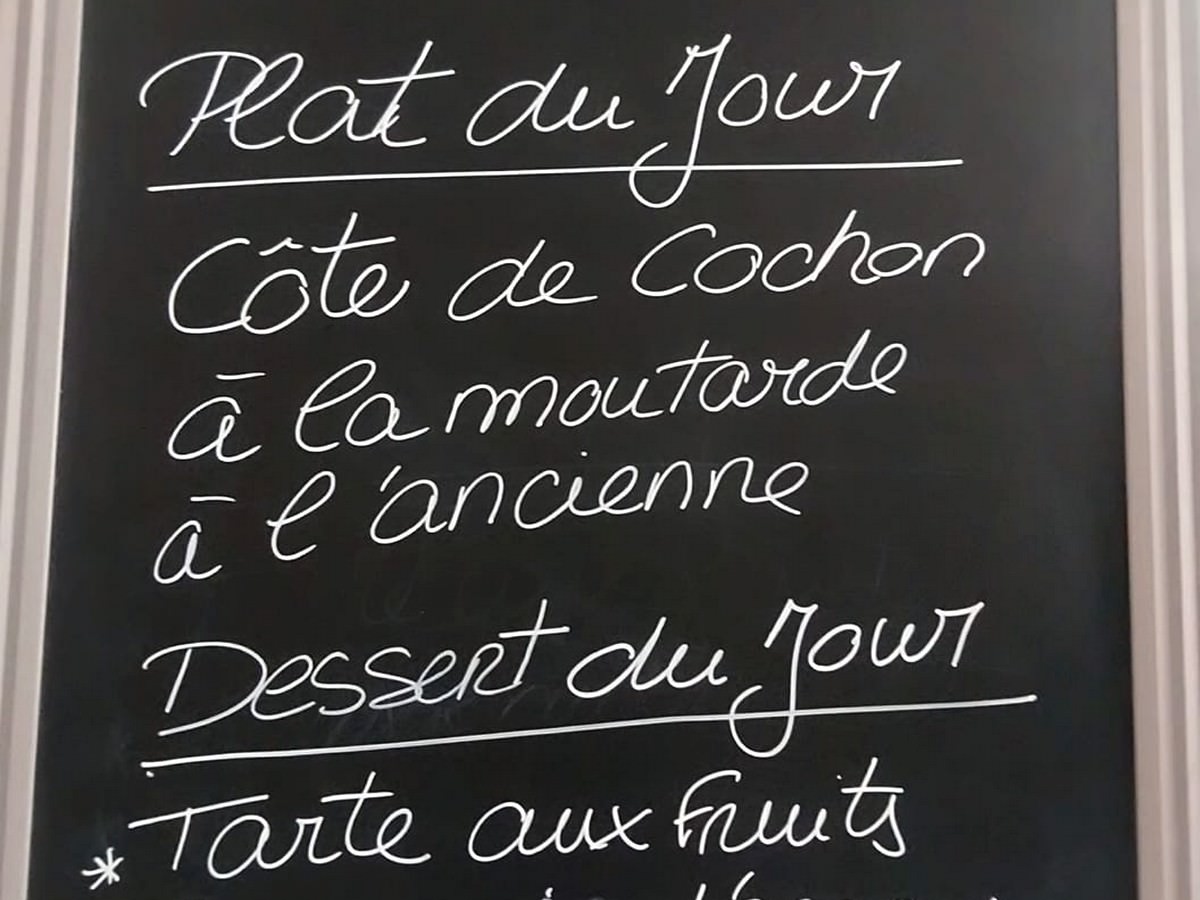 Plat du Jour
Côte de Cochon
à la moutarde
à l'ancienne
Dessert du Jour
* Tarte aux fruits